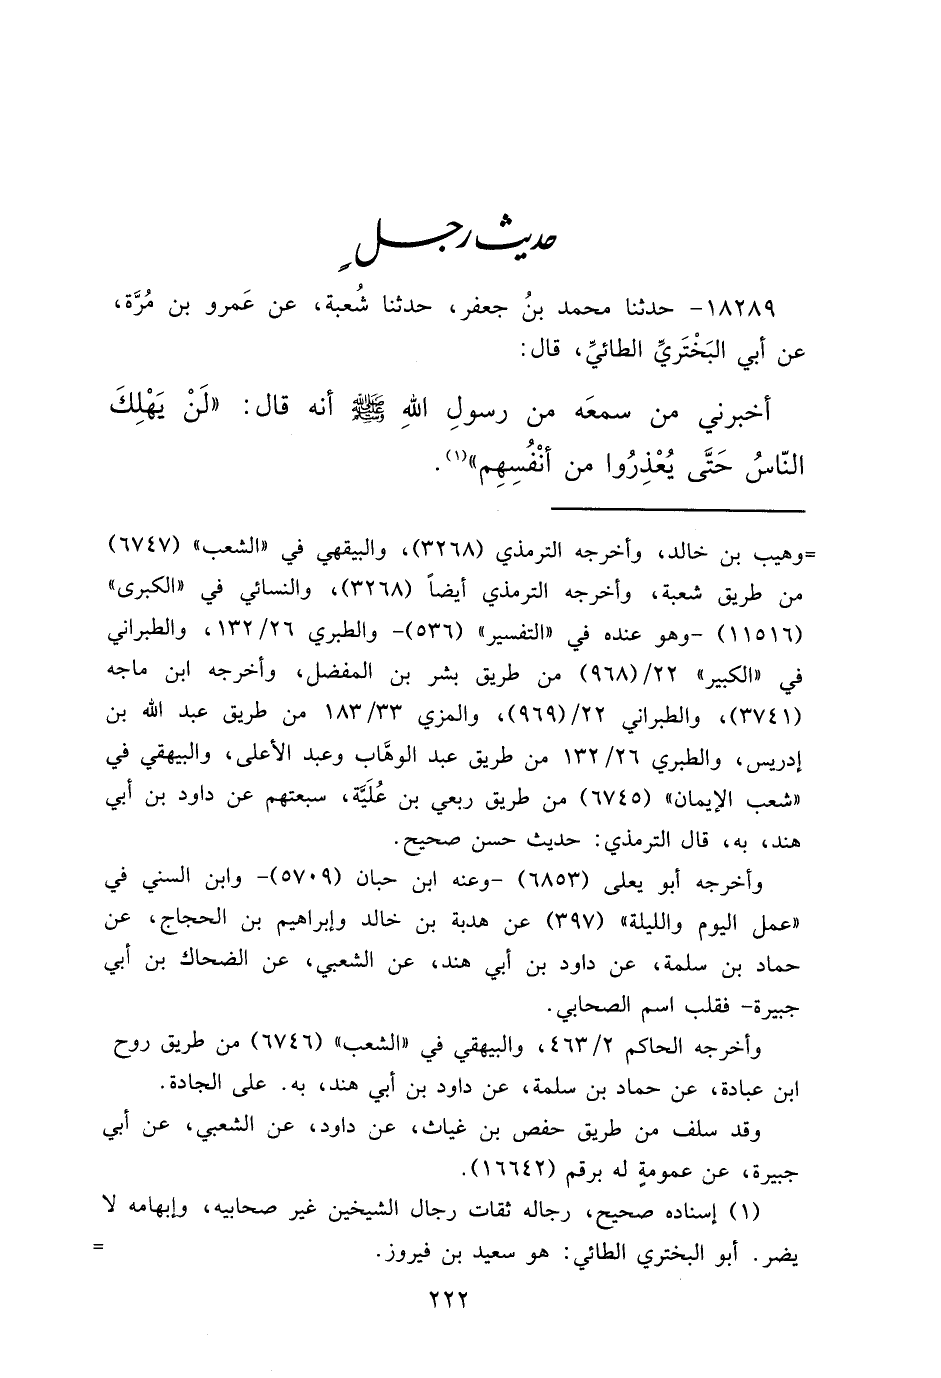 حديث رجل
١٨٢٨٩- حدثنا محمد بنُ جعفر، حدثنا شُعبة، عن عَمرو بن مُرَّة،
عن أبي البَخْتَريِّ الطائيِّ، قال:
أخبرني من سمعَه من رسولِ اللهِ ﷺ أنه قال: «لَنْ يَهْلِكَ
النّاسُ حَتَّى يُعْذِرُوا من أنْفُسِهِم»(١).
=وهيب بن خالد، وأخرجه الترمذي (٣٢٦٨)، والبيقهي في «الشعب» (٦٧٤٧)
من طريق شعبة، وأخرجه الترمذي أيضاً (٣٢٦٨)، والنسائي في «الكبرى»
(١١٥١٦) -وهو عنده في «التفسير» (٥٣٦)- والطبري ١٣٢/٢٦، والطبراني
في «الكبير» ٢٢/(٩٦٨) من طريق بشر بن المفضل، وأخرجه ابن ماجه
(٣٧٤١)، والطبراني ٢٢/(٩٦٩)، والمزي ١٨٣/٣٣ من طريق عبد الله بن
إدريس، والطبري ١٣٢/٢٦ من طريق عبد الوهَّاب وعبد الأعلى، والبيهقي في
«شعب الإيمان» (٦٧٤٥) من طريق ربعي بن عُلَيَّة، سبعتهم عن داود بن أبي
هند، به، قال الترمذي: حديث حسن صحيح.
وأخرجه أبو يعلى (٦٨٥٣) -وعنه ابن حبان (٥٧٠٩)- وابن السني في
«عمل اليوم والليلة» (٣٩٧) عن هدبة بن خالد وإبراهيم بن الحجاج، عن
حماد بن سلمة، عن داود بن أبي هند، عن الشعبي، عن الضحاك بن أبي
جبيرة- فقلب اسم الصحابي.
وأخرجه الحاكم ٤٦٣/٢، والبيهقي في «الشعب» (٦٧٤٦) من طريق روح
ابن عبادة، عن حماد بن سلمة، عن داود بن أبي هند، به. على الجادة.
وقد سلف من طريق حفص بن غياث، عن داود، عن الشعبي، عن أبي
جبيرة، عن عمومةٍ له برقم (١٦٦٤٢).
(١) إسناده صحيح، رجاله ثقات رجال الشيخين غير صحابيه، وإبهامه لا
يضر. أبو البختري الطائي: هو سعيد بن فيروز. =
٢٢٢